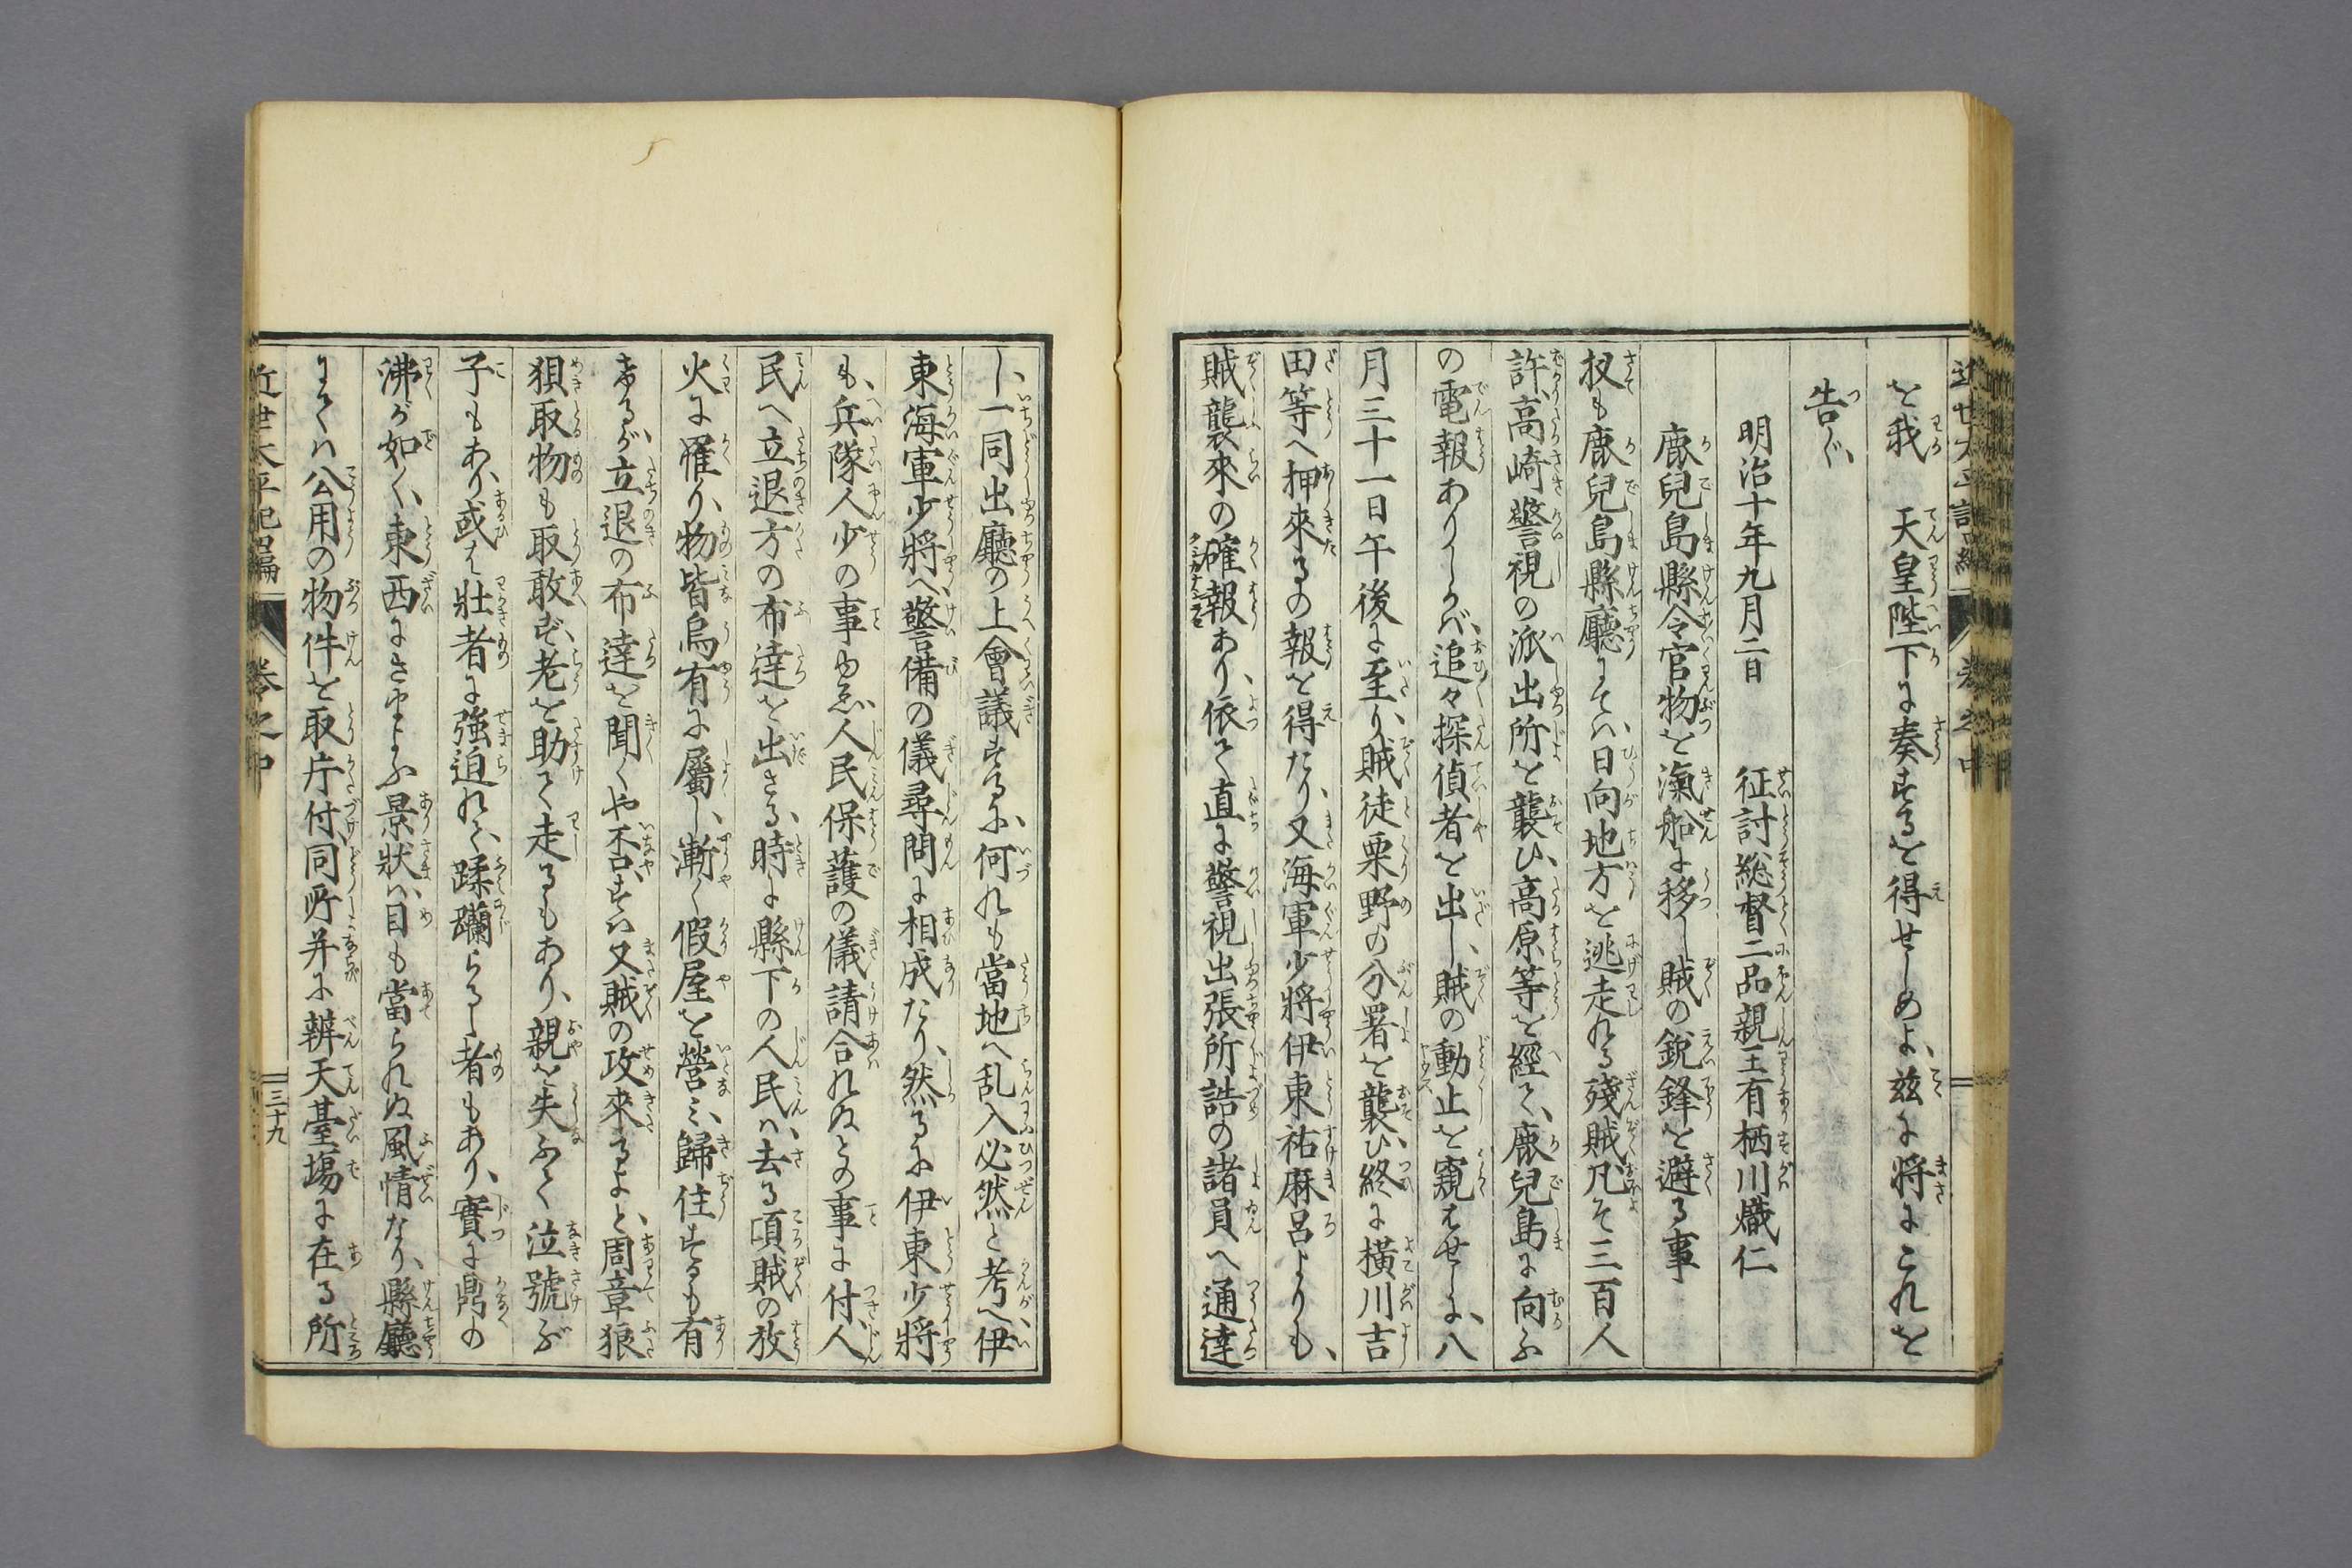 を我　天皇陛下に奏するを得せしめよ、茲に将にこれを
告ぐ、
明治十年九月二日　征討総督二品親王有栖川熾仁
鹿兒島縣令官物を滊船に移し賊の鋭鋒を避る事
扨も鹿兒島縣廳にてハ、日向地方を逃走れる殘賊凡そ三百人
許、高崎警視の派出所を襲ひ、高原等を經て、鹿兒島に向ふ
の電報ありしかバ、追々探偵者を出し、賊の動止を窺はせしに、八
月三十一日午後に至り、賊徒栗野の分署を襲ひ、終に横川吉
田等へ押來るの報を得たり、又海軍少將伊東祐麻呂よりも、
賊襲來の確報あり、依て直に警視出張所詰の諸員へ通達
し、一同出廳の上會議するに、何れも當地へ乱入必然と考へ伊
東海軍少將へ警備の儀尋問に相成たり、然るに伊東少將
も、兵隊人少の事ゆゑ、人民保護の儀請合れぬとの事に付、人
民へ立退方の布達を出さる、時に縣下の人民ハ、去る頃賊の放
火に罹り、物皆烏有に屬し、漸く假屋を營ミ、歸住するも有
けるが、立退の布達を聞くや否、すハ又賊の攻來るよと、周章狼
狽取物も取敢ず、老を助て走るもあり、親を失ふて泣號ぶ
子もあり、或は壯者に強迫れて、蹂躪らるゝ者もあり、實に鼎の
沸が如く、東西にさまよふ景狀ハ、目も當られぬ風情なり、縣廳
にてハ公用の物件を取片付、同所并に辨天臺場に在る所
近世太平記編　卷之中　三十九